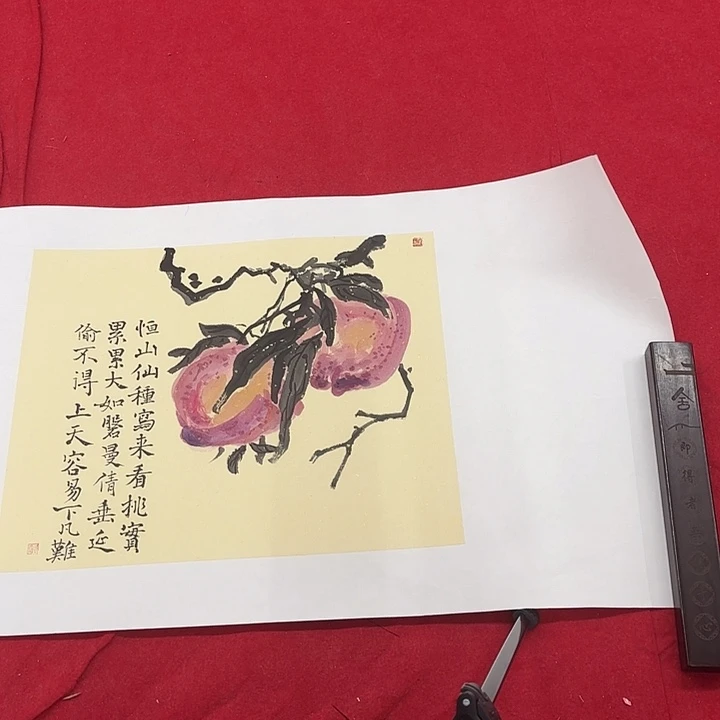 恒山仙種寫来看桃實
累累大如磐曼倩垂延
偷不得上天容易下凡難
舍
即得者